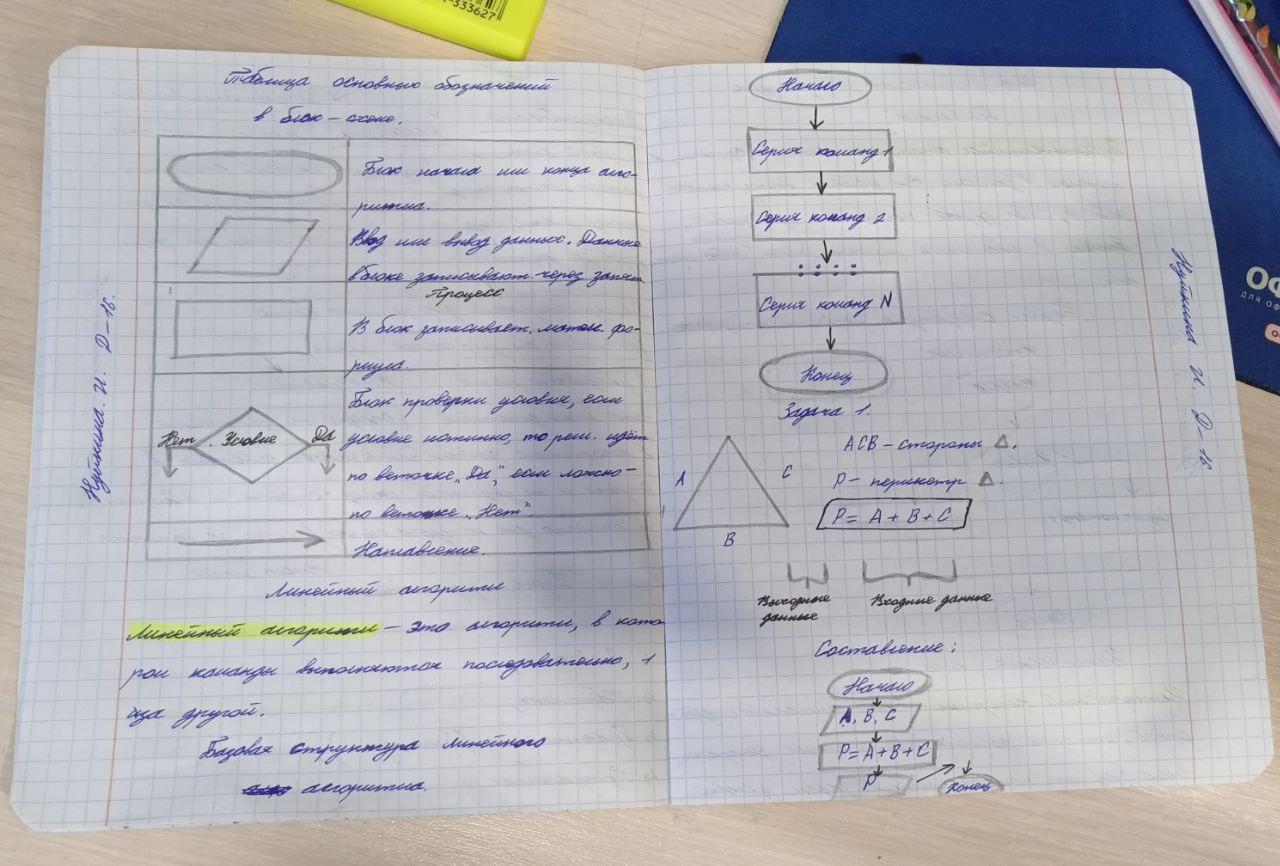 333627
Таблица основных обозначений
в блок-схеме.
Блок начала или конца алго-
ритма.
Ввод или вывод данных. Данные
в блоке записывают. через запят.
Процесс
В блок записывает. матем. фо-
рмула.
Блок проверки условия, если
Нет Условие Да
условие истинно, то реш. идёт
по веточке „Да", если ложно-
по веточке „Нет".
Направление.
Линейный алгоритм
Линейный алгоритм - это алгоритм, в кото
ром команды выполняются последовательно, 1
за другой.
Базовая структура линейного
алгоритма.
И. D-16.
Начало
Серия команд 1
Серия команд 2
Серия команд N
Конец
Задача 1.
A C B
ACB - стороны Δ.
P - периметр Δ.
P = A + B + C
Выходные
данные
Входные данные
Составление:
Начало
A, B, C
P=A+B+C
P
Конец
И. D-16.
ДЛЯ ОФ